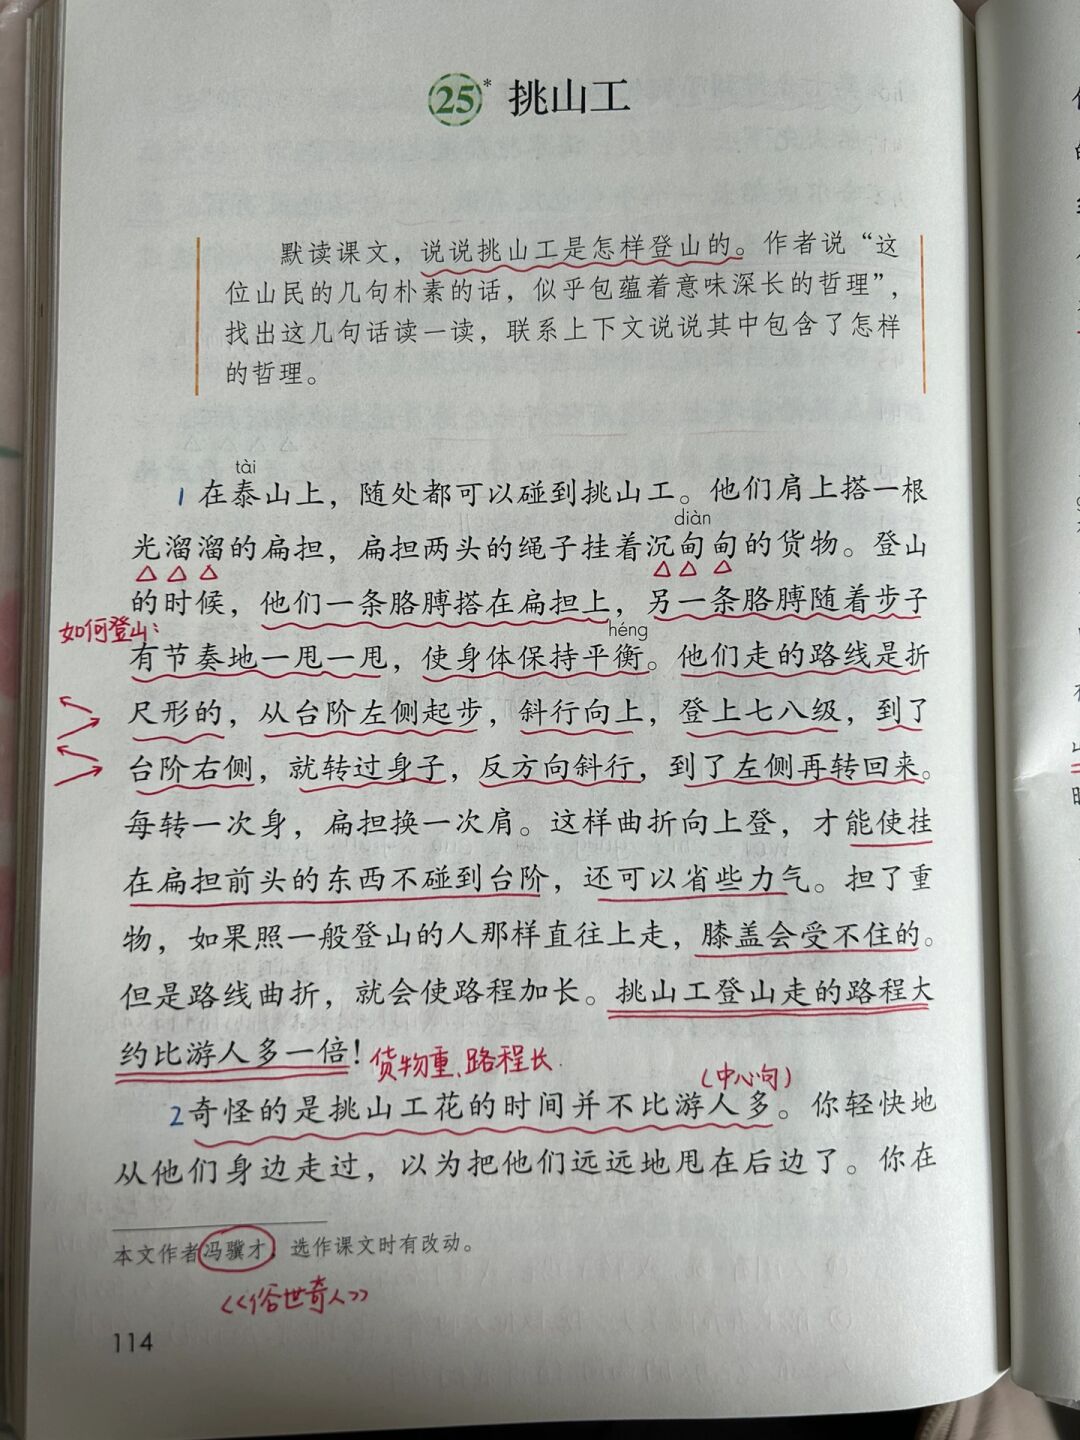 25* 挑山工
默读课文，说说挑山工是怎样登山的。作者说“这
位山民的几句朴素的话，似乎包蕴着意味深长的哲理”，
找出这几句话读一读，联系上下文说说其中包含了怎样
的哲理。
tài
1 在泰山上，随处都可以碰到挑山工。他们肩上搭一根
diàn
光溜溜的扁担，扁担两头的绳子挂着沉甸甸的货物。登山
的时候，他们一条胳膊搭在扁担上，另一条胳膊随着步子
如何登山：
héng
有节奏地一甩一甩，使身体保持平衡。他们走的路线是折
尺形的，从台阶左侧起步，斜行向上，登上七八级，到了
台阶右侧，就转过身子，反方向斜行，到了左侧再转回来。
每转一次身，扁担换一次肩。这样曲折向上登，才能使挂
在扁担前头的东西不碰到台阶，还可以省些力气。担了重
物，如果照一般登山的人那样直往上走，膝盖会受不住的。
但是路线曲折，就会使路程加长。挑山工登山走的路程大
约比游人多一倍！
货物重、路程长
（中心句）
2 奇怪的是挑山工花的时间并不比游人多。你轻快地
从他们身边走过，以为把他们远远地甩在后边了。你在
本文作者冯骥才，选作课文时有改动。
《俗世奇人》
114